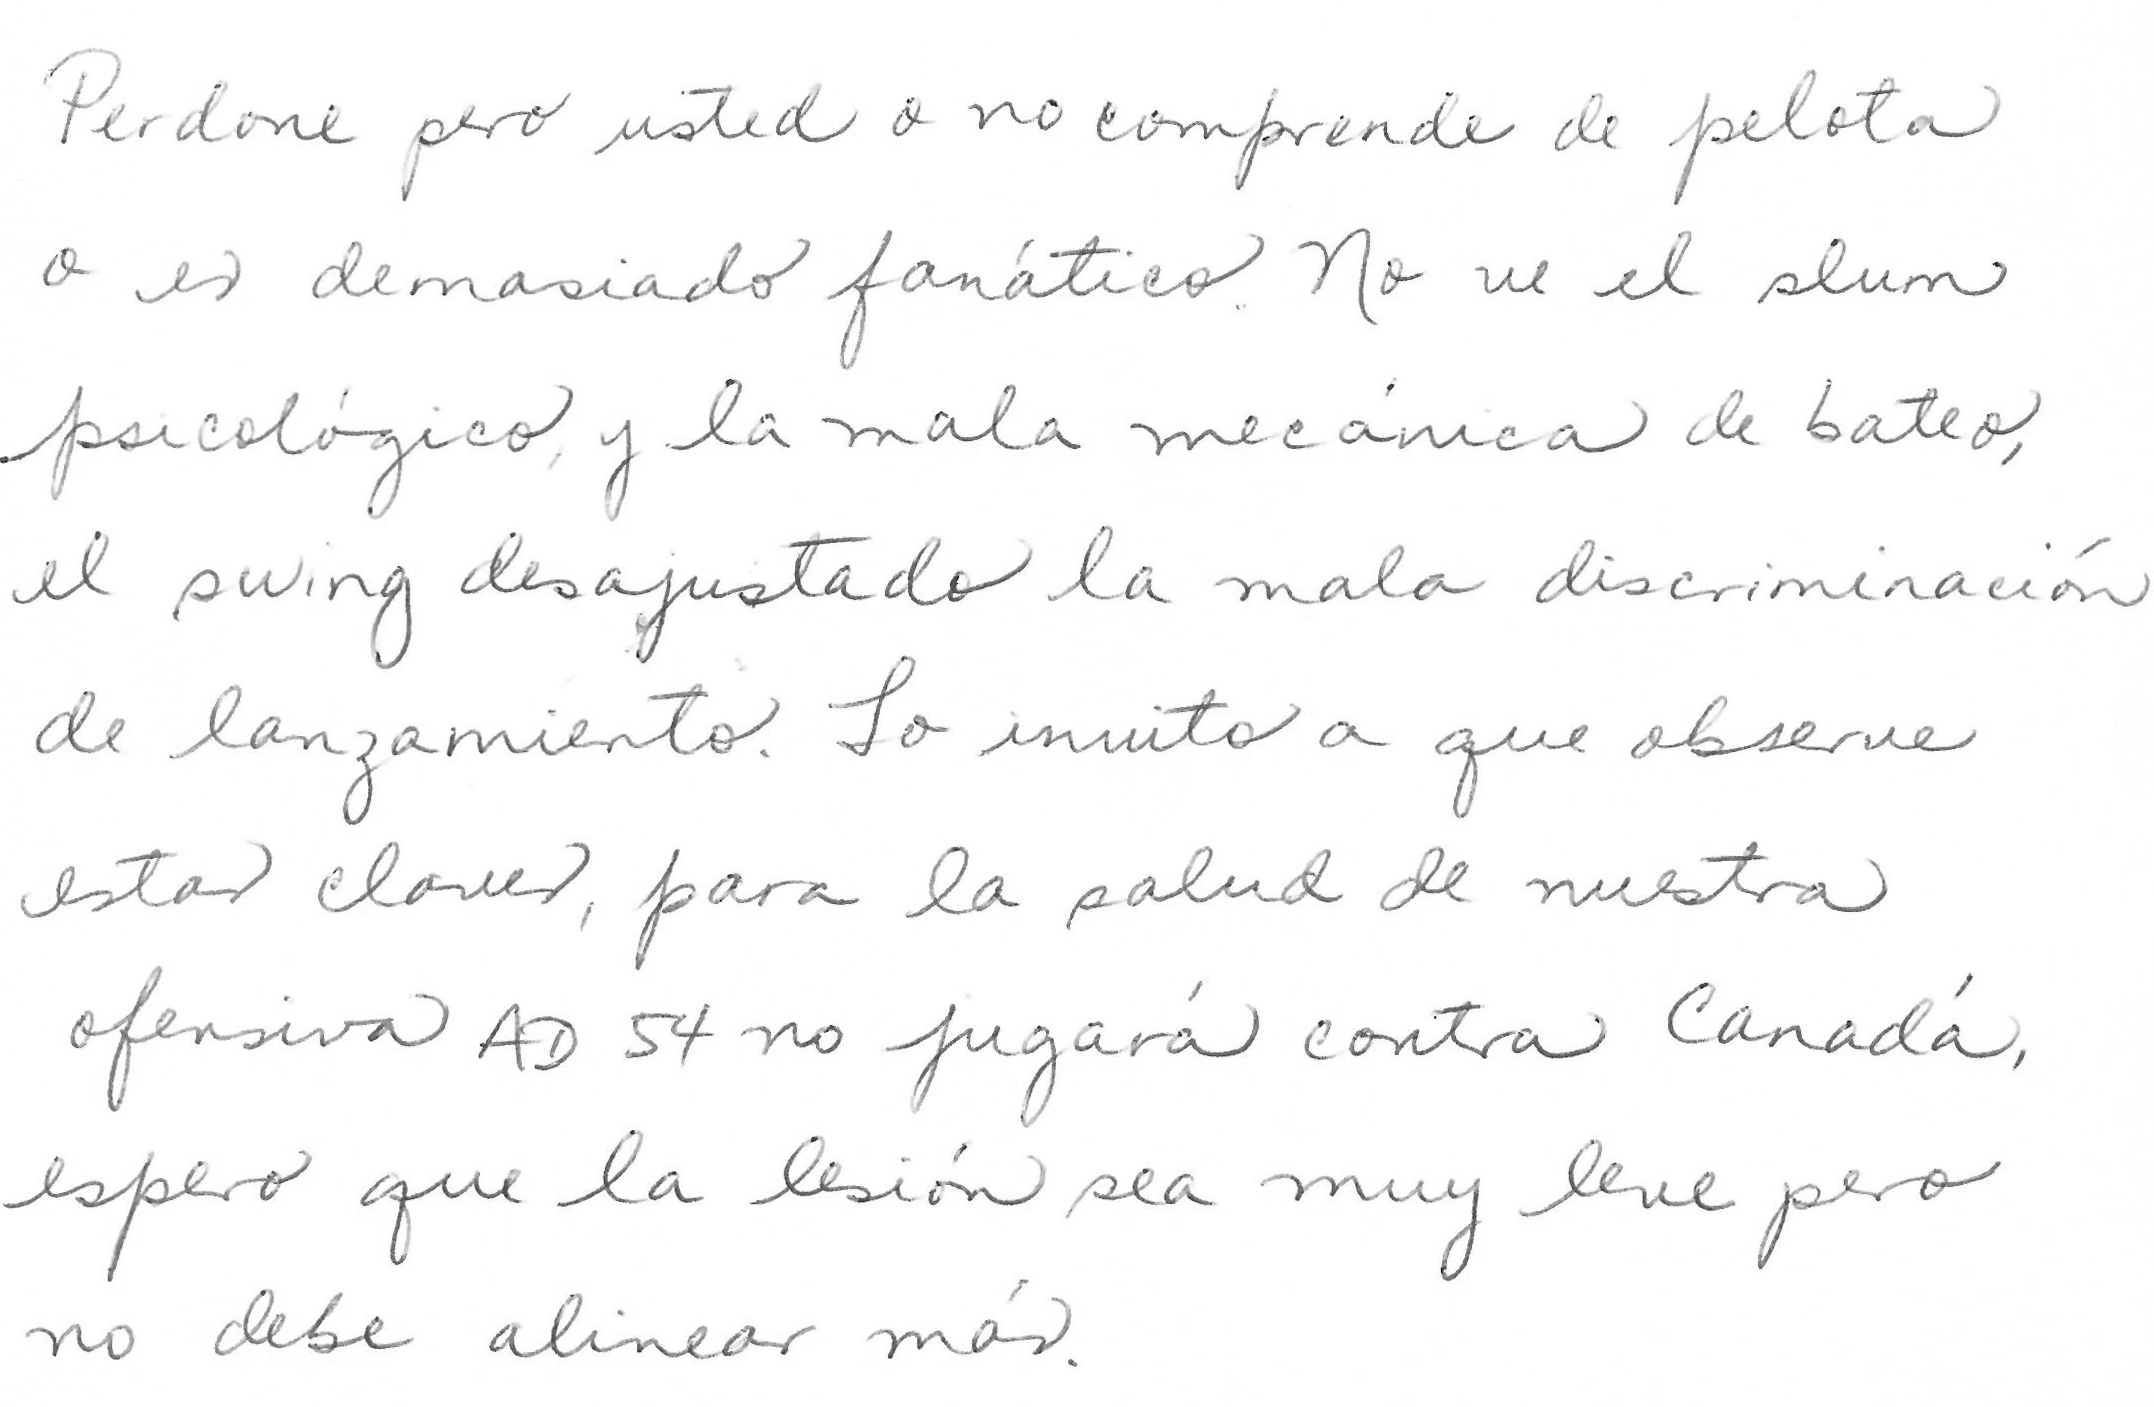 Perdone pero usted o no comprende de pelota
o es demasiado fanático. No ve el slum
psicológico, y la mala mecánica de bateo,
el swing desajustado la mala discriminación
de lanzamiento. Lo invito a que observe
estas claves, para la salud de nuestra
ofensiva AD 54 no jugará contra Canadá,
espero que la lesión sea muy leve pero
no debe alinear más.